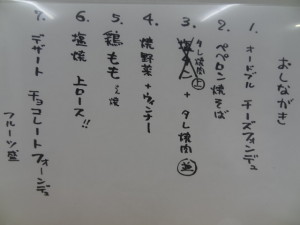 おしながき
1. オードブル チーズフォンデュ
2. ペペロン焼そば
3. タレ焼肉(上) + タレ焼肉(並)
4. 焼野菜+ウィンナー
5. 鶏もも焼
6. 塩焼 上ロース!!
7. デザート チョコレートフォーンデュ
フルーツ盛